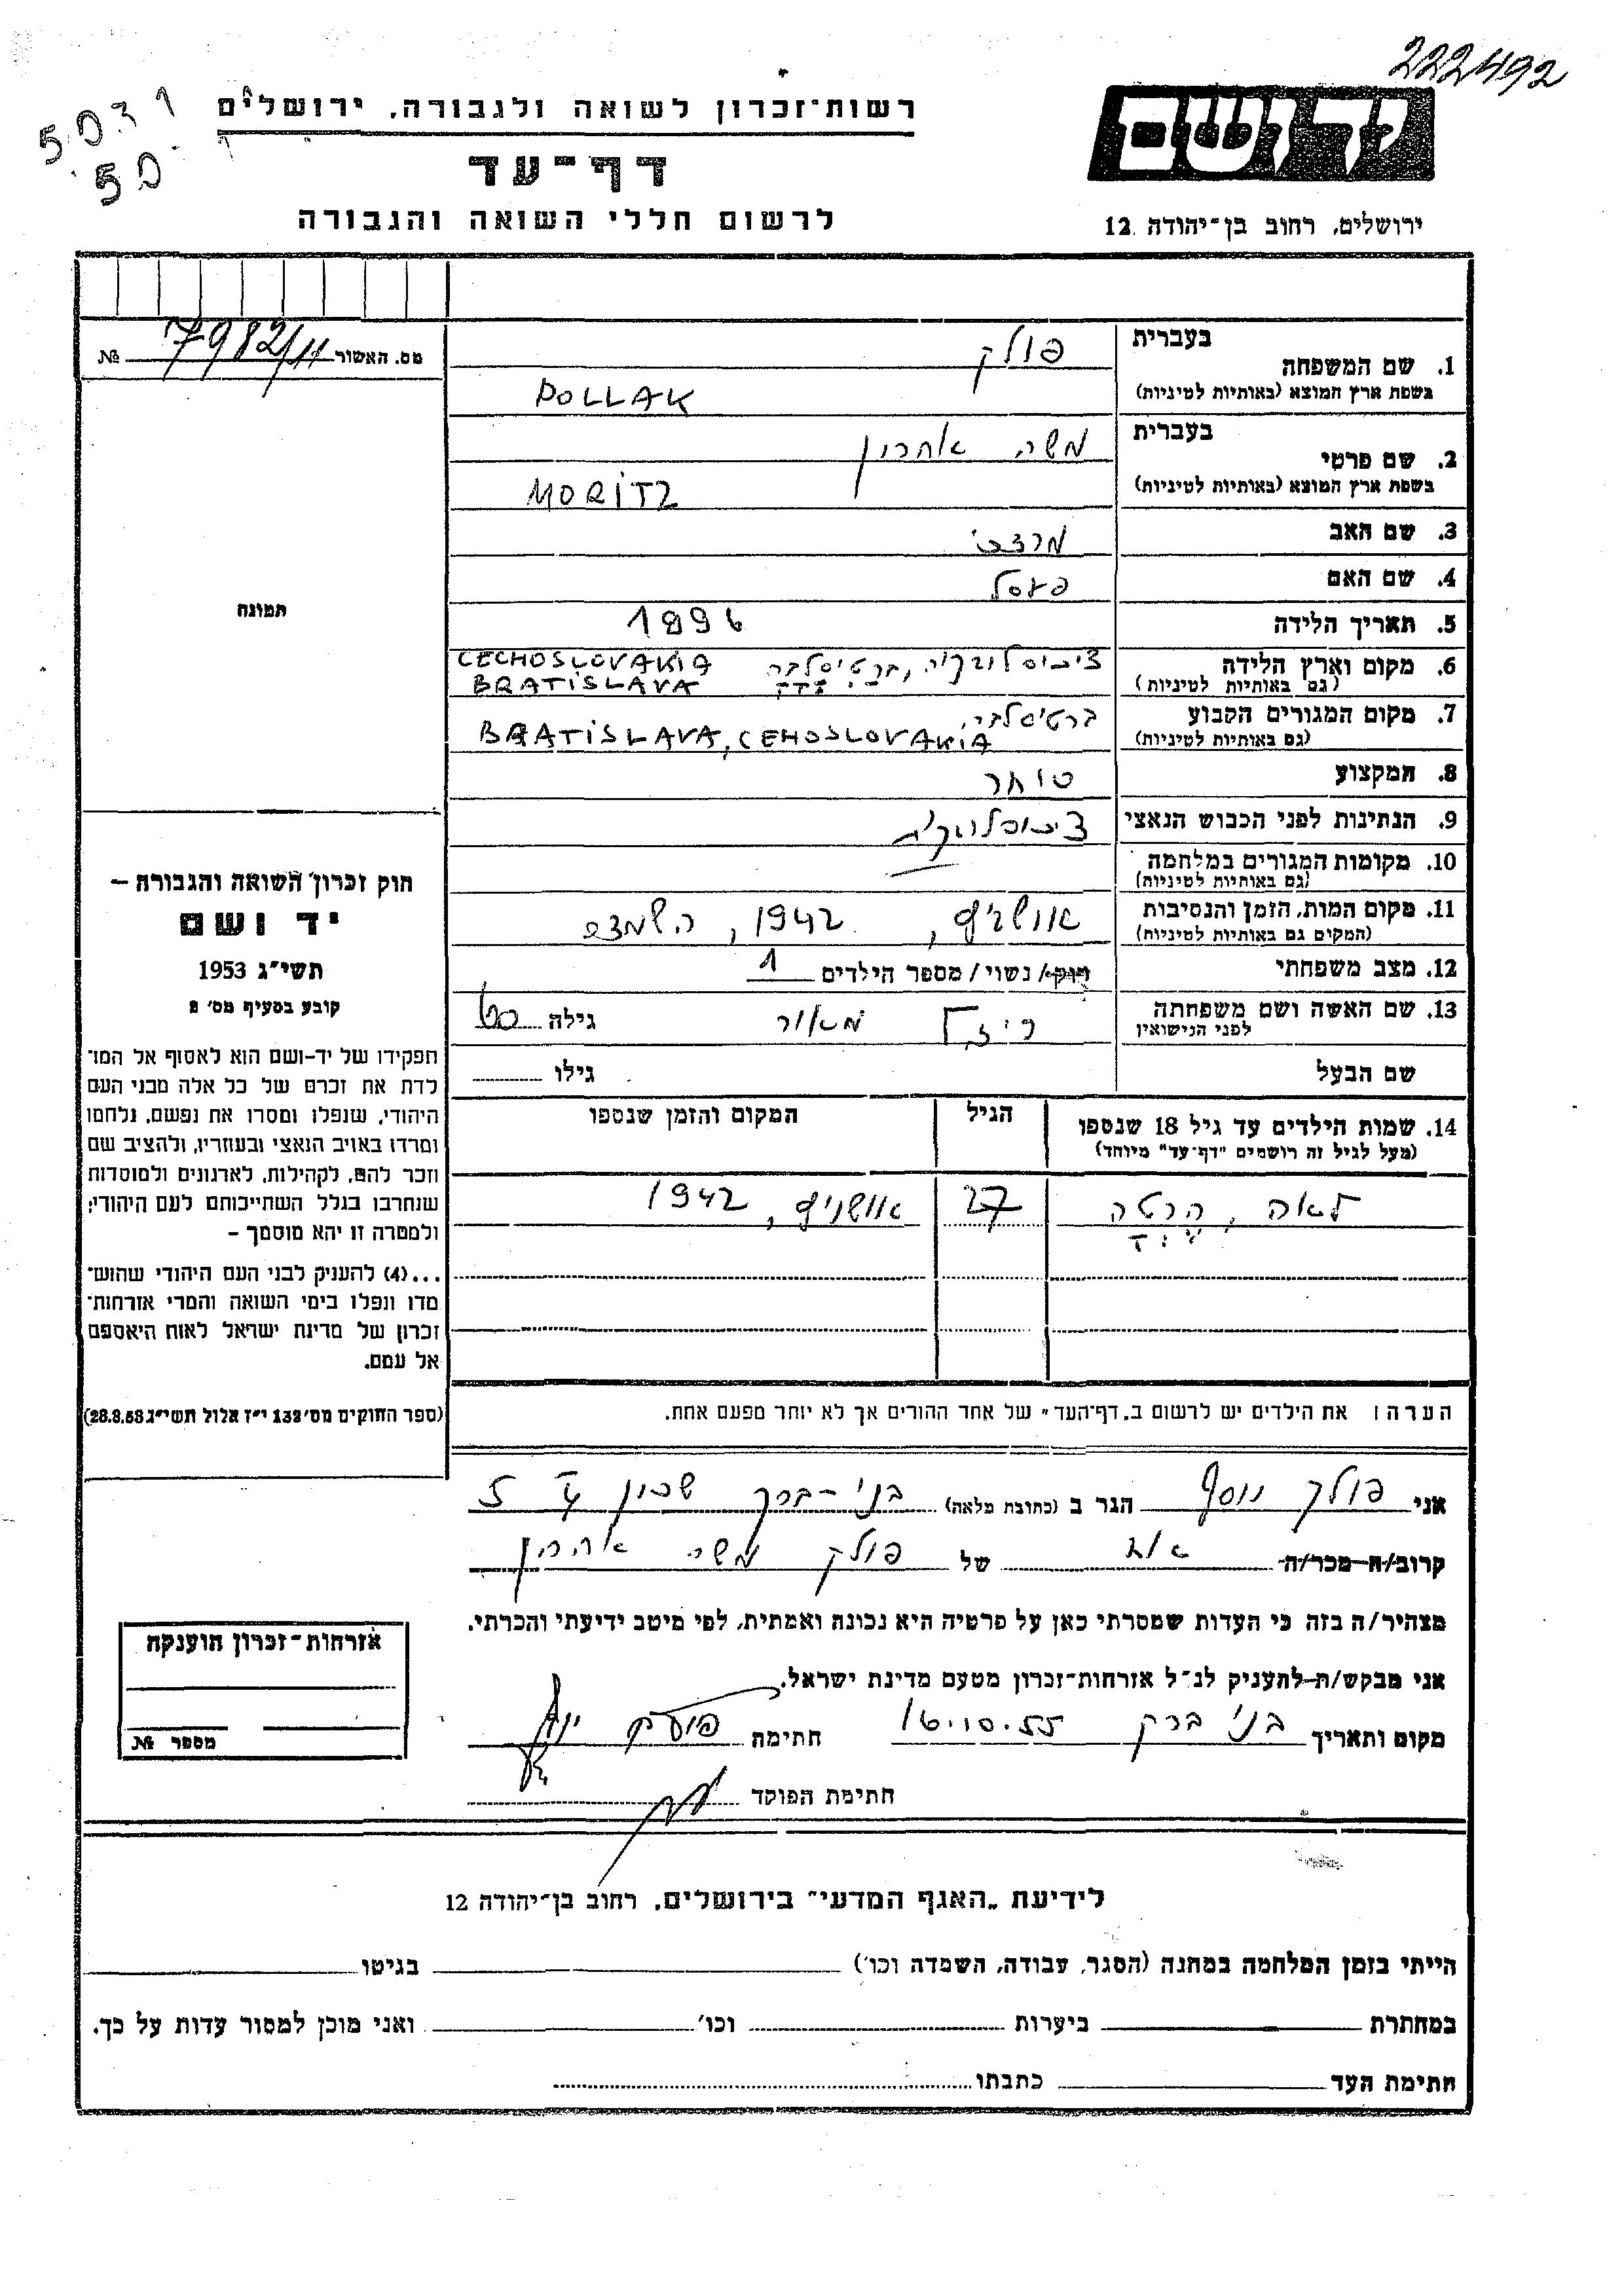 222492
5031
50
יד ושם
רשות־זכרון לשואה ולגבורה, ירושלים
דף־עד
לרשום חללי השואה והגבורה
ירושלים, רחוב בן־יהודה 12
מס. האשור 7982/11 №
בעברית
1. שם המשפחה פולק
בשפת ארץ המוצא (באותיות לטיניות) POLLAK
בעברית
2. שם פרטי משה אהרון
בשפת ארץ המוצא (באותיות לטיניות) MORITZ
3. שם האב מרדכי
4. שם האם
5. תאריך הלידה 1896
6. מקום וארץ הלידה
(גם באותיות לטיניות) CECHOSLOVAKIA
BRATISLAVA
7. מקום המגורים הקבוע
(גם באותיות לטיניות) BRATISLAVA, CEHOSLOVAKIA
8. המקצוע סוחר
9. הנתינות לפני הכבוש הנאצי
10. מקומות המגורים במלחמה
(גם באותיות לטיניות)
11. מקום המות, הזמן והנסיבות 1942,
(המקום גם באותיות לטיניות)
12. מצב משפחתי רווק/ נשוי/ מספר הילדים 1
13. שם האשה ושם משפחתה
לפני הנישואין גילה
שם הבעל גילו
14. שמות הילדים עד גיל 18 שנספו
(מעל לגיל זה רושמים "דף־עד" מיוחד)
הגיל
המקום והזמן שנספו
לאה, הרטה 27 1942
תמונה
חוק זכרון השואה והגבורה —
יד ושם
תשי״ג 1953
קובע בסעיף מס׳ 2
תפקידו של יד-ושם הוא לאסוף אל המו־
לדת את זכרם של כל אלה מבני העם
היהודי, שנפלו ומסרו את נפשם, נלחמו
ומרדו באויב הנאצי ובעוזריו, ולהציב שם
וזכר להם, לקהילות, לארגונים ולמוסדות
שנחרבו בגלל השתייכותם לעם היהודי;
ולמטרה זו יהא מוסמך —
...(4) להעניק לבני העם היהודי שהוש־
מדו ונפלו בימי השואה והמרי אזרחות־
זכרון של מדינת ישראל לאות היאספם
אל עמם.
(ספר החוקים מס׳ 132 י״ז אלול תשי״ג 28.8.53)
הערה: את הילדים יש לרשום ב„דף־העד״ של אחד ההורים אך לא יותר מפעם אחת.
אני פולק יוסף הגר ב (כתובת מלאה) בני-ברק שכון 5
קרוב/ה מכר/ה של פולק משה אהרון
מצהיר/ה בזה כי העדות שמסרתי כאן על פרטיה היא נכונה ואמתית, לפי מיטב ידיעתי והכרתי.
אני מבקש/ת להעניק לנ״ל אזרחות־זכרון מטעם מדינת ישראל.
מקום ותאריך בני ברק 16.10.55 חתימה
חתימת הפוקד
אזרחות־זכרון הוענקה
מספר №
לידיעת „האגף המדעי״ בירושלים, רחוב בן־יהודה 12
הייתי בזמן המלחמה במחנה (הסגר, עבודה, השמדה וכו׳) בגיטו
במחתרת ביערות וכו׳ ואני מוכן למסור עדות על כך.
חתימת העד כתבתו